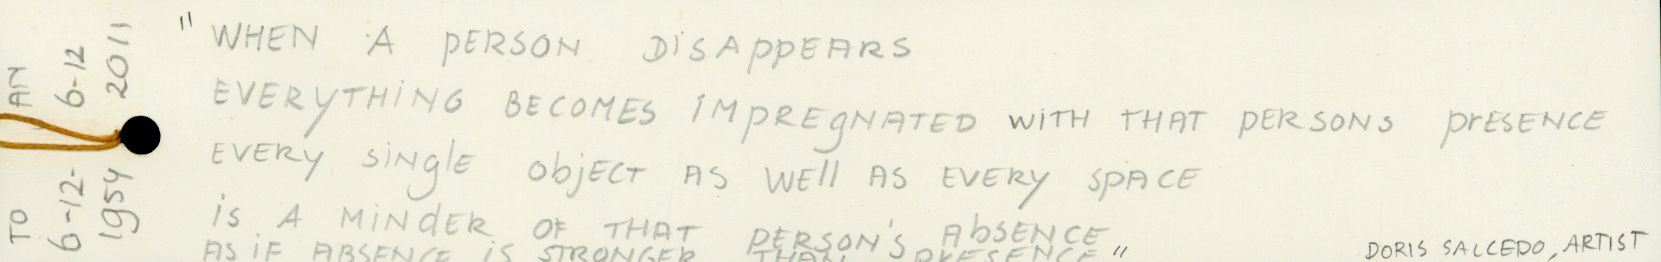 "WHEN A PERSON DISAPPEARS
EVERYTHING BECOMES IMPREGNATED WITH THAT PERSONS PRESENCE
EVERY SINGLE OBJECT AS WELL AS EVERY SPACE
IS A MINDER OF THAT PERSON'S ABSENCE
AS IF ABSENCE IS STRONGER THAN PRESENCE"
DORIS SALCEDO, ARTIST
TO AN
6-12- 6-12
1954 2011